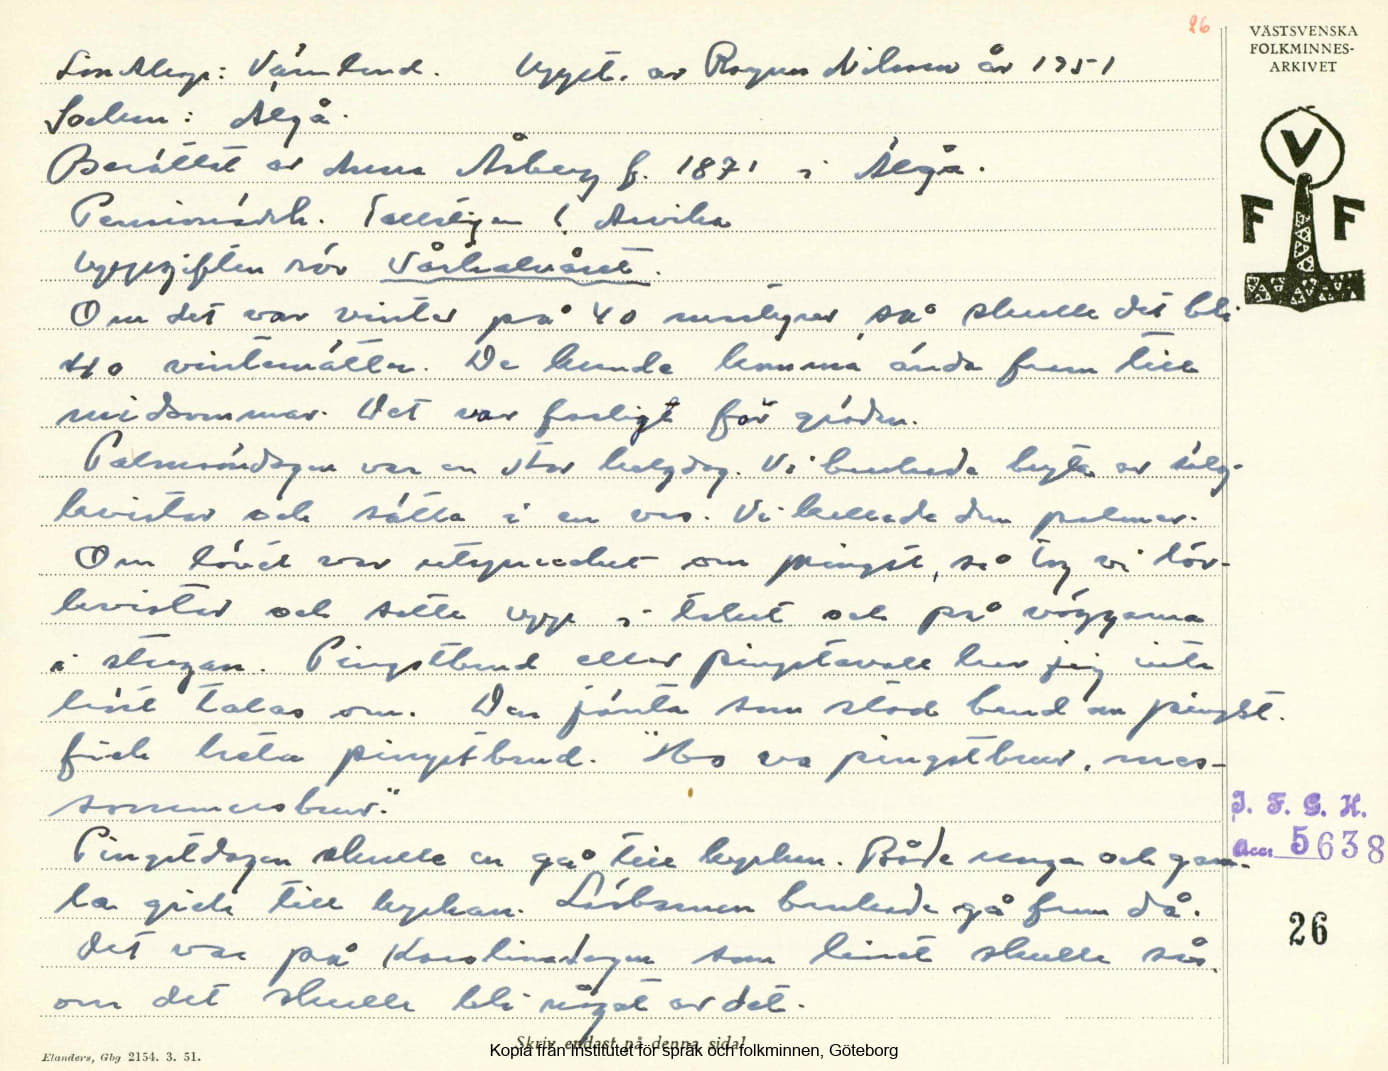 26
VÄSTSVENSKA
FOLKMINNES-
ARKIVET
V
F F
Landskap: Värmland. Uppt. av Ragnar Nilsson år 1951
Socken: Älgå.
Berättat av Anna Åsberg f. 1871 i Älgå.
Pensionärsh. Tallstigen Arvika
Uppgiften rör Vårkalvåret.
Om det var vinter på 40 martyrer, så skulle det bli
40 vinternätter. De kunde komma ända fram till
midsommar. Det var farligt för gröden.
Palmsöndagen var en stor helgdag. Vi brukade bryta av sälg-
kvistar och sätta i en vas. Vi kallade den palmer.
Om lövet var utspruchet om pingst, så tog vi löv-
kvistar och satte upp i taket och på väggarna
i stugan. Pingstbrud eller pingstavall har jag inte
hört talas om. Den jänta som stod brud om pingst.
fick heta pingstbrud. "Ho va pingstbrur, mes-
sommersbrur."
Pingstdagen skulle en gå till kyrkan. Både unga och gam-
la gick till kyrkan. Läsbarnen brukade gå fram då.
Det var på Karolinadagen som linet skulle sås.
om det skulle bli något av det.
J. F. G. H.
Acc: 5638
26
Skriv endast på denna sida!
Elanders, Gbg 2154. 3. 51.
Kopia från Institutet för språk och folkminnen, Göteborg